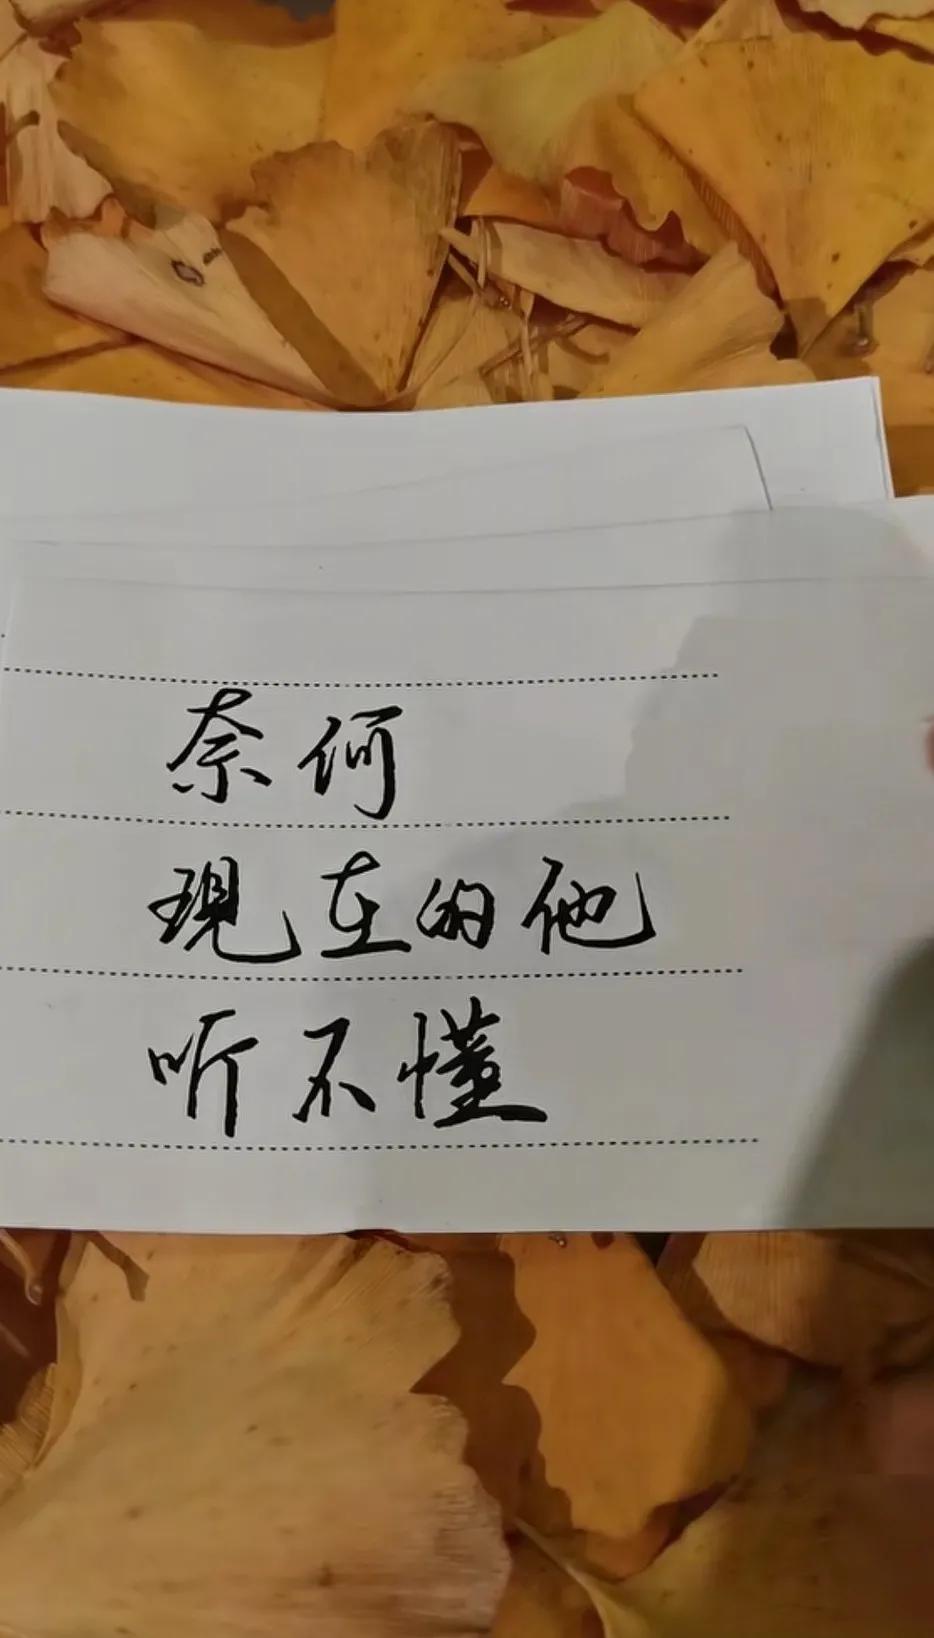 奈何
现在的他
听不懂